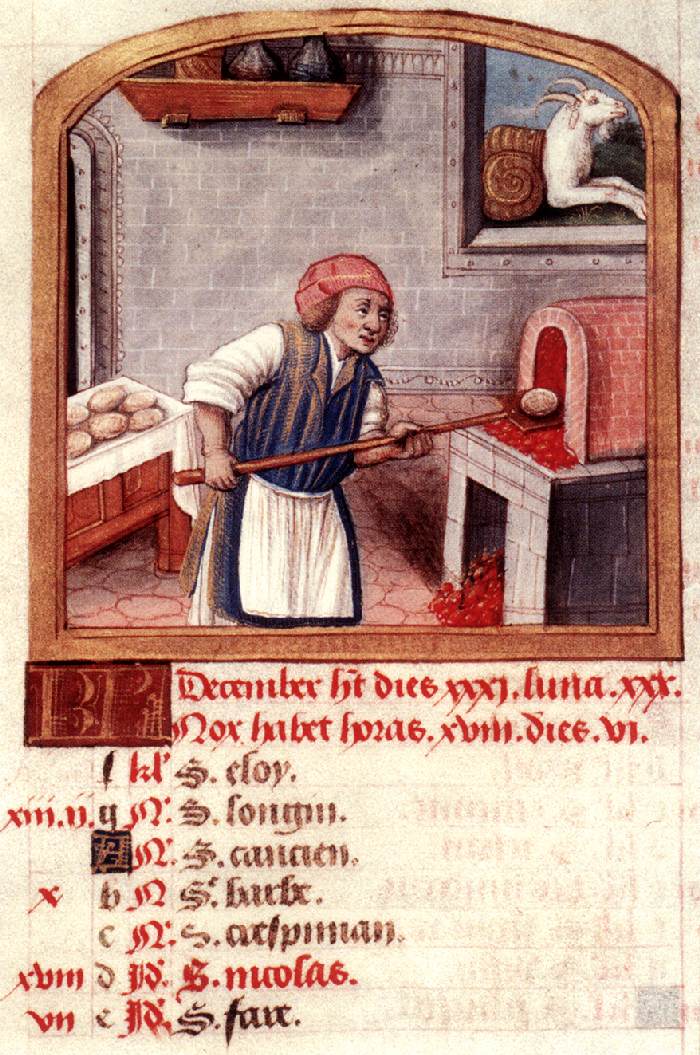 December ht dies xxxi. luna. xxx.
Nox habet horas. xviii. dies. vi.
f kl' S. eloy.
xiii. ii. g N. S. longin.
A N. S. cancien.
x b N Sᵉ barbe.
c N. S. crespinian.
xviii d Id. S. nicolas.
vii e Id. S. fare.